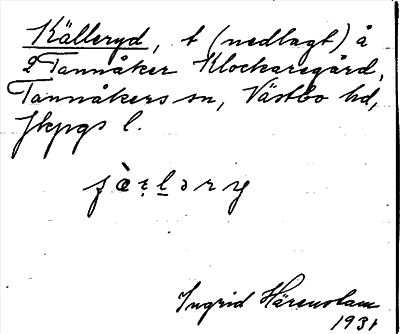 Källeryd, t (nedlagt) å
Tannåker Klockaregård,
Tannåkers sn, Västbo hd,
Jkpgs l.
Ingrid Härenstam
1931